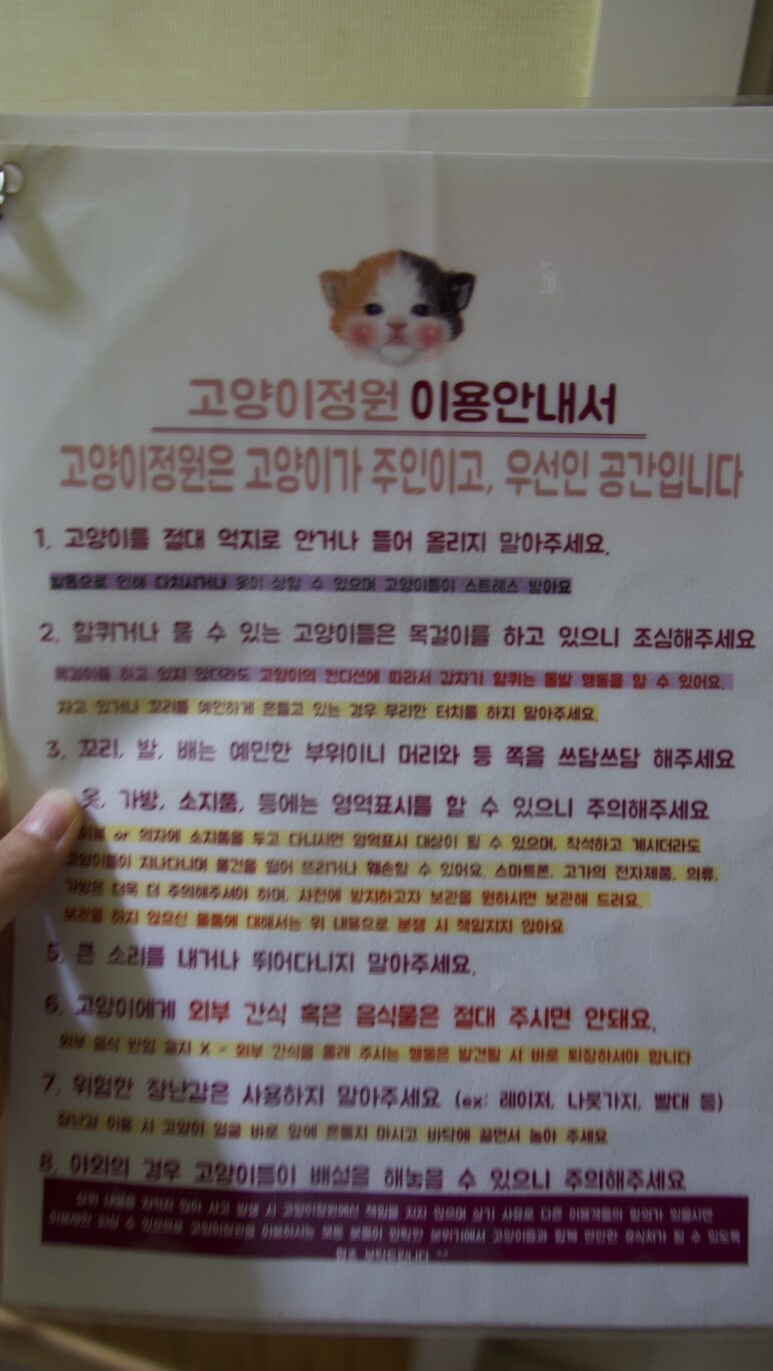 고양이정원 이용안내서
고양이정원은 고양이가 주인이고, 우선인 공간입니다
1. 고양이를 절대 억지로 안거나 들어 올리지 말아주세요.
발톱으로 인해 다치시거나 옷이 상할 수 있으며 고양이들이 스트레스 받아요
2. 할퀴거나 물 수 있는 고양이들은 목걸이를 하고 있으니 조심해주세요
목걸이를 하고 있지 않더라도 고양이의 컨디션에 따라서 갑자기 할퀴는 돌발 행동을 할 수 있어요.
자고 있거나 꼬리를 예민하게 흔들고 있는 경우 무리한 터치를 하지 말아주세요.
3. 꼬리, 발, 배는 예민한 부위이니 머리와 등 쪽을 쓰담쓰담 해주세요
옷, 가방, 소지품, 등에는 영역표시를 할 수 있으니 주의해주세요
or 의자에 소지품을 두고 다니시면 영역표시 대상이 될 수 있으며, 착석하고 계시더라도
고양이들이 지나다니며 물건을 떨어 뜨리거나 훼손할 수 있어요. 스마트폰, 고가의 전자제품, 의류,
가방은 더욱 더 주의해주셔야 하며, 사전에 방지하고자 보관을 원하시면 보관해 드려요.
보관을 하지 않으신 물품에 대해서는 위 내용으로 분쟁 시 책임지지 않아요
5. 큰 소리를 내거나 뛰어다니지 말아주세요.
6. 고양이에게 외부 간식 혹은 음식물은 절대 주시면 안돼요.
외부 음식 반입 금지 X - 외부 간식을 몰래 주시는 행동은 발견될 시 바로 퇴장하셔야 합니다
7. 위험한 장난감은 사용하지 말아주세요 (ex: 레이저, 나뭇가지, 빨대 등)
장난감 이용 시 고양이 얼굴 바로 앞에 흔들지 마시고 바닥에 끌면서 놀아 주세요
8. 야외의 경우 고양이들이 배설을 해놓을 수 있으니 주의해주세요
상위 내용을 지키지 않아 사고 발생 시 고양이정원에선 책임을 지지 않으며 상기 사유로 다른 이용객들의 항의가 있을시엔
이용제한 되실 수 있으므로 고양이정원을 이용하시는 모든 분들이 안락한 분위기에서 고양이들과 함께 편안한 휴식처가 될 수 있도록
협조 부탁드립니다 ^^